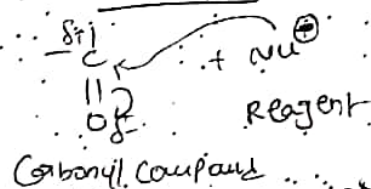 δ+
C + Nu⊕
||
Oδ- Reagent
Carbonyl Coupaud